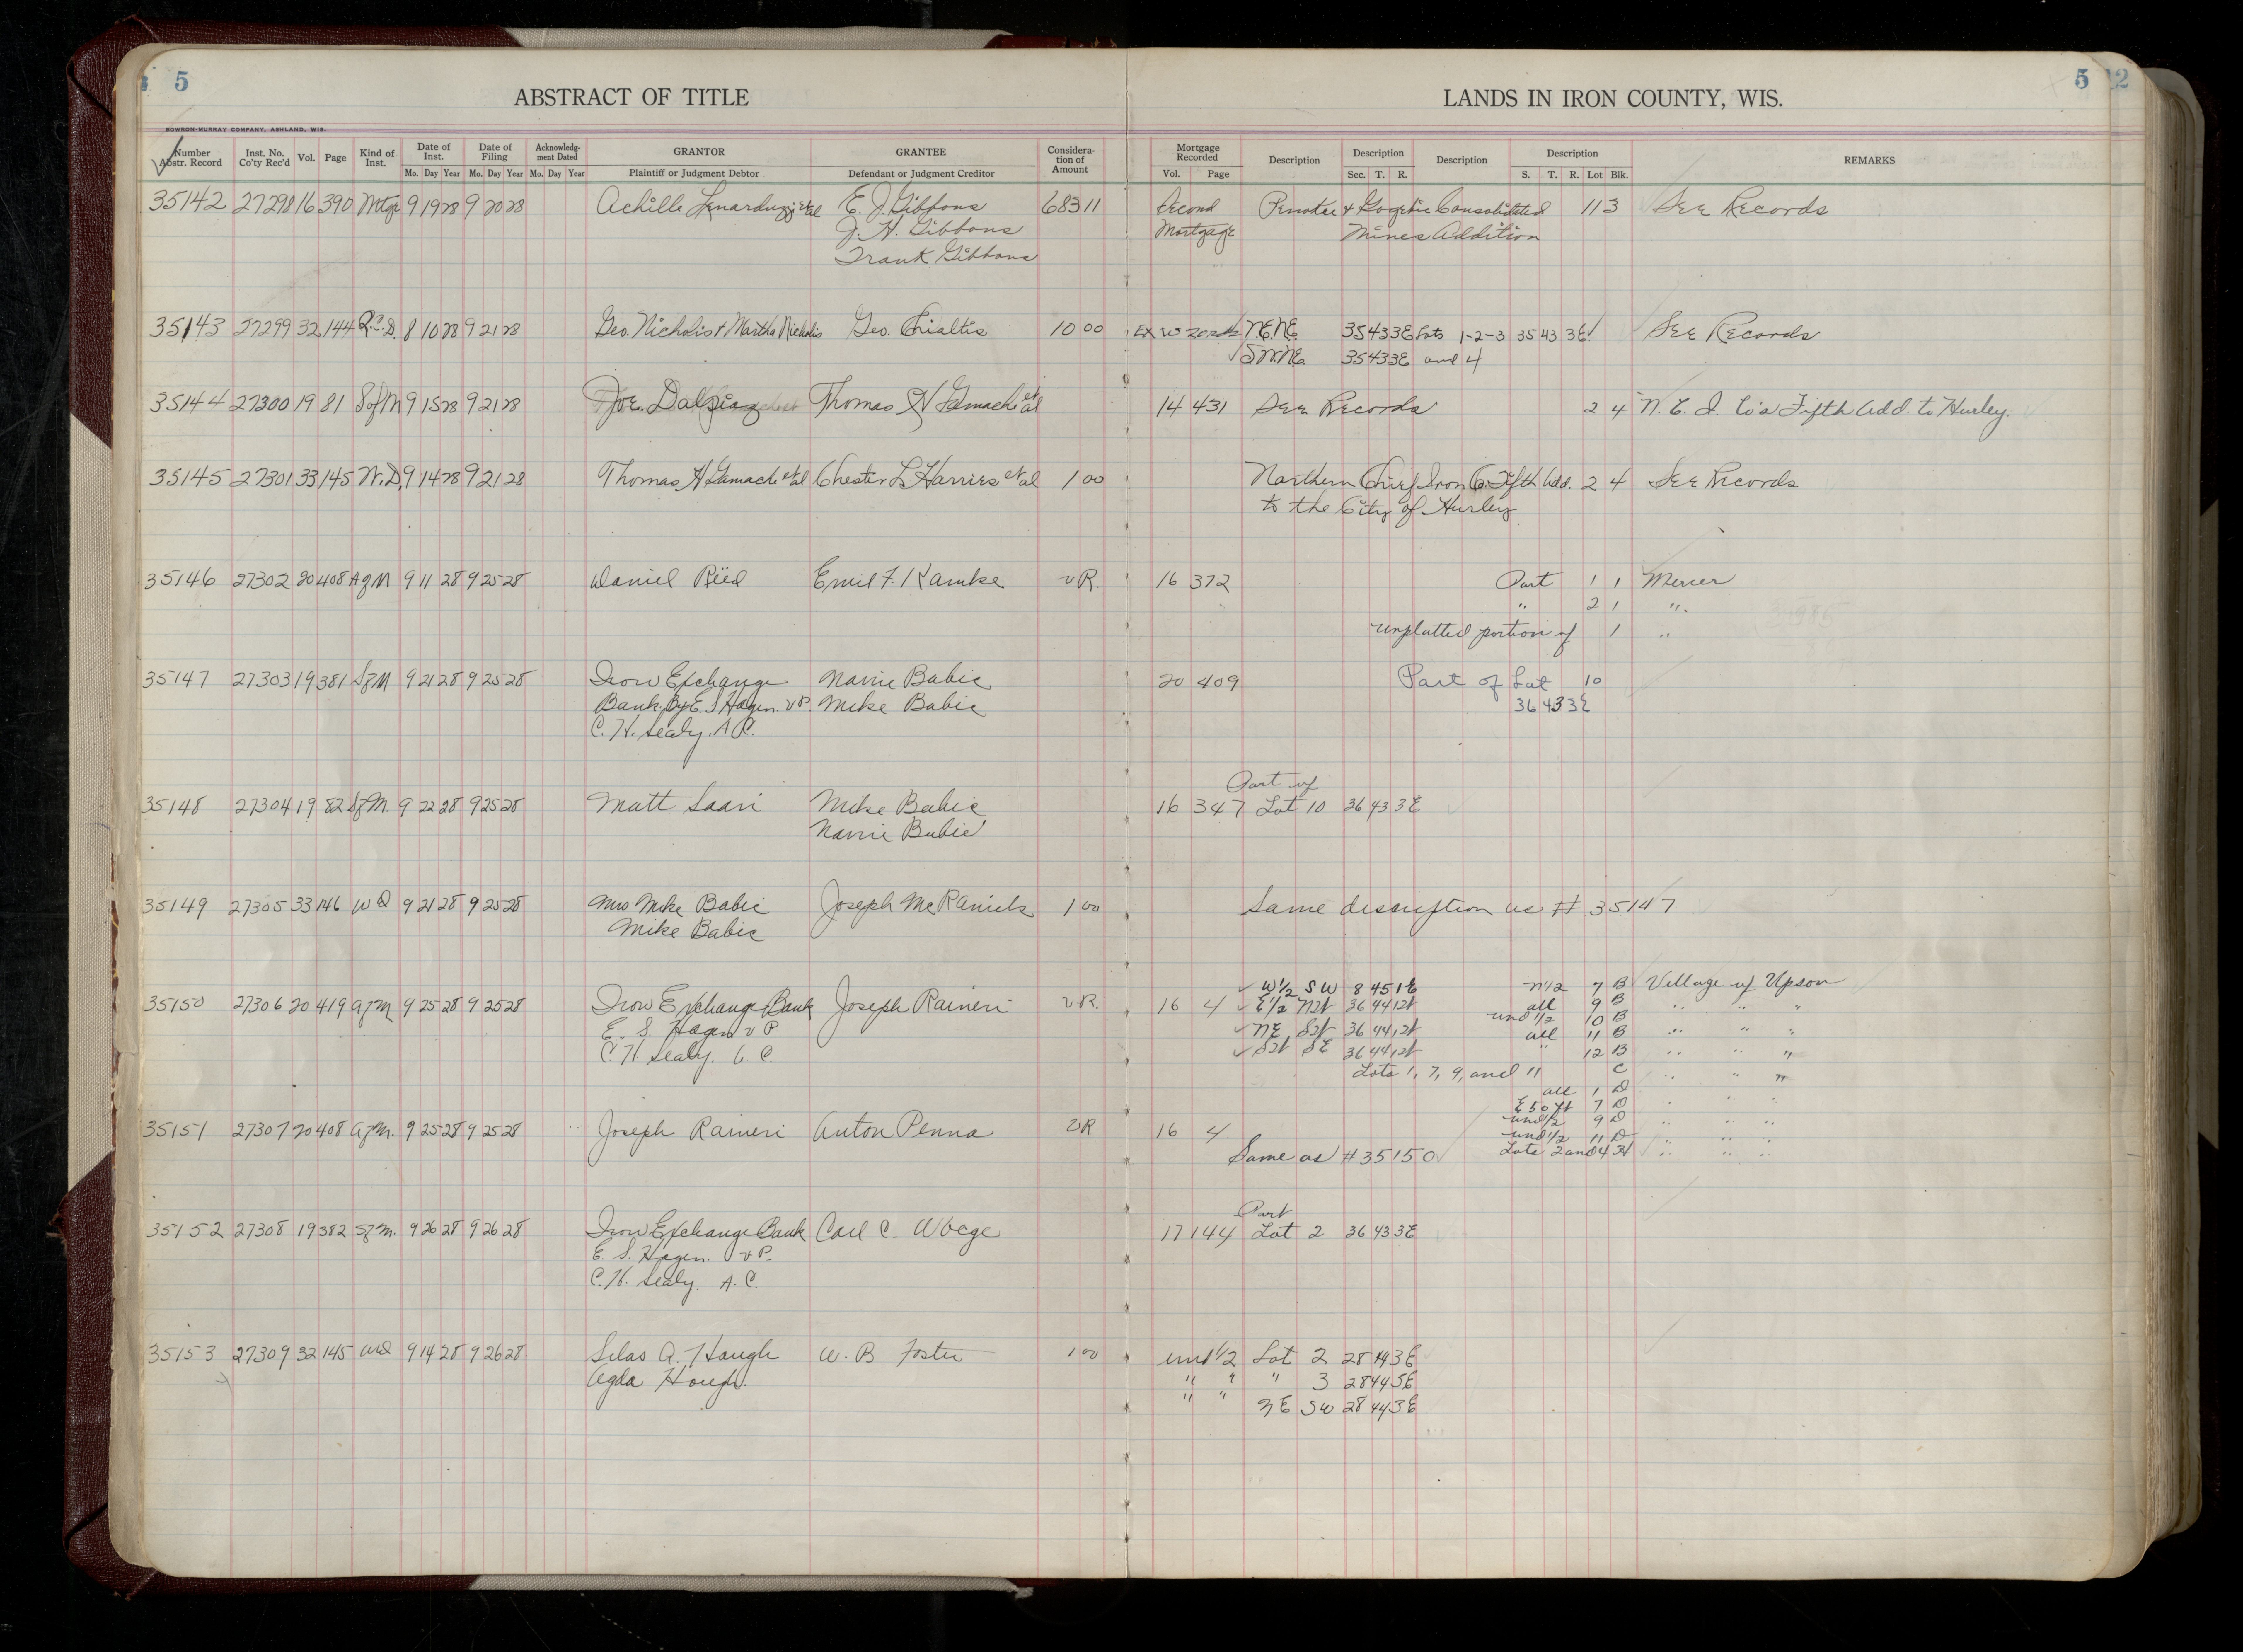 5
5
ABSTRACT OF TITLE
LANDS IN IRON COUNTY, WIS.
BOWRON-MURRAY COMPANY, ASHLAND, WIS.
Number Abstr. Record Inst. No. Co'ty Rec'd Vol. Page Kind of Inst. Date of Inst. Date of Filing Acknowledg-ment Dated GRANTOR GRANTEE Considera-tion of Amount Mortgage Recorded Description Description Description Description REMARKS
Mo. Day Year Mo. Day Year Mo. Day Year Plaintiff or Judgment Debtor Defendant or Judgment Creditor Vol. Page Sec. T. R. S. T. R. Lot Blk.
35142 27298 16 390 Mtge 9 19 28 9 20 28 Achille Lenarduzzi et al E. J. Gibbons 683 11 Second Penokee & Gogebic Consolidated 11 3 See Records
J. H. Gibbons Mortgage Mines Addition
Frank Gibbons
35143 27299 32 144 Q.C.D. 8 10 28 9 21 28 Geo. Nicholis & Martha Nicholis Geo. 10 00 Ex W 20 rds N.E.N.E. 35 43 3E Lots 1-2-3 35 43 3E See Records
S.W.N.E. 35 43 3E and 4
35144 27300 19 81 S of M 9 15 28 9 21 28 Joe. Dalpiaz Thomas H Gamache et al 14 431 See Records 2 4 N. C. I. Co's Fifth Add. to Hurley.
35145 27301 33 145 W.D. 9 14 28 9 21 28 Thomas H Gamache et al Chester L Harries et al 1 00 Northern Chief Iron Co. Fifth Add. 2 4 See Records
to the City of Hurley
35146 27302 20 408 A of M 9 11 28 9 25 28 Daniel Reed Emil F. Kamke v R. 16 372 Part 1 1 Mercer
" 2 1 "
unplatted portion of 1 "
35147 27303 19 381 S of M 9 21 28 9 25 28 Iron Exchange Marie Babic 20 409 Part of Lot 10
Bank By E. S Hagen. VP. Mike Babic 36 43 3E
C. H. Sealy. A C.
Part of
35148 27304 19 82 S of M. 9 22 28 9 25 28 Matt Saari Mike Babic 16 347 Lot 10 36 43 3E
Marie Babic
35149 27305 33 146 W D 9 21 28 9 25 28 Mrs Mike Babic Joseph McRaniels 1 00 Same description as # 35147
Mike Babic
W 1/2 SW 8 45 1E N 1/2 7 B Village of Upson
35150 27306 20 419 A of M 9 25 28 9 25 28 Iron Exchange Bank Joseph Raineri v R. 16 4 E 1/2 NW 36 44 1W all 9 B " " "
E. S. Hagen VP NE SW 36 44 1W und 1/2 10 B " " "
C. H. Sealy. A. C. SW SE 36 44 1W all 11 B " " "
" 12 B " " "
Lots 1, 7, 9, and 11 C " " "
all 1 D " " "
E 50 ft 7 D " " "
und 1/2 9 D " " "
35151 27307 20 408 A of M. 9 25 28 9 25 28 Joseph Raineri Anton Penna v R 16 4 und 1/2 11 D " " "
Same as # 35150 Lots 2 and 4 H " " "
Part
35152 27308 19 382 S of M. 9 26 28 9 26 28 Iron Exchange Bank Carl C. Wbege 17 144 Lot 2 36 43 3E
E. S. Hagen. VP.
C. H. Sealy. A. C.
35153 27309 32 145 W D 9 14 28 9 26 28 Silas A. Hough W. B Foster 1 00 und 1/2 Lot 2 28 44 3E
Agda Hough. " " " 3 28 44 3E
" " NE SW 28 44 3E